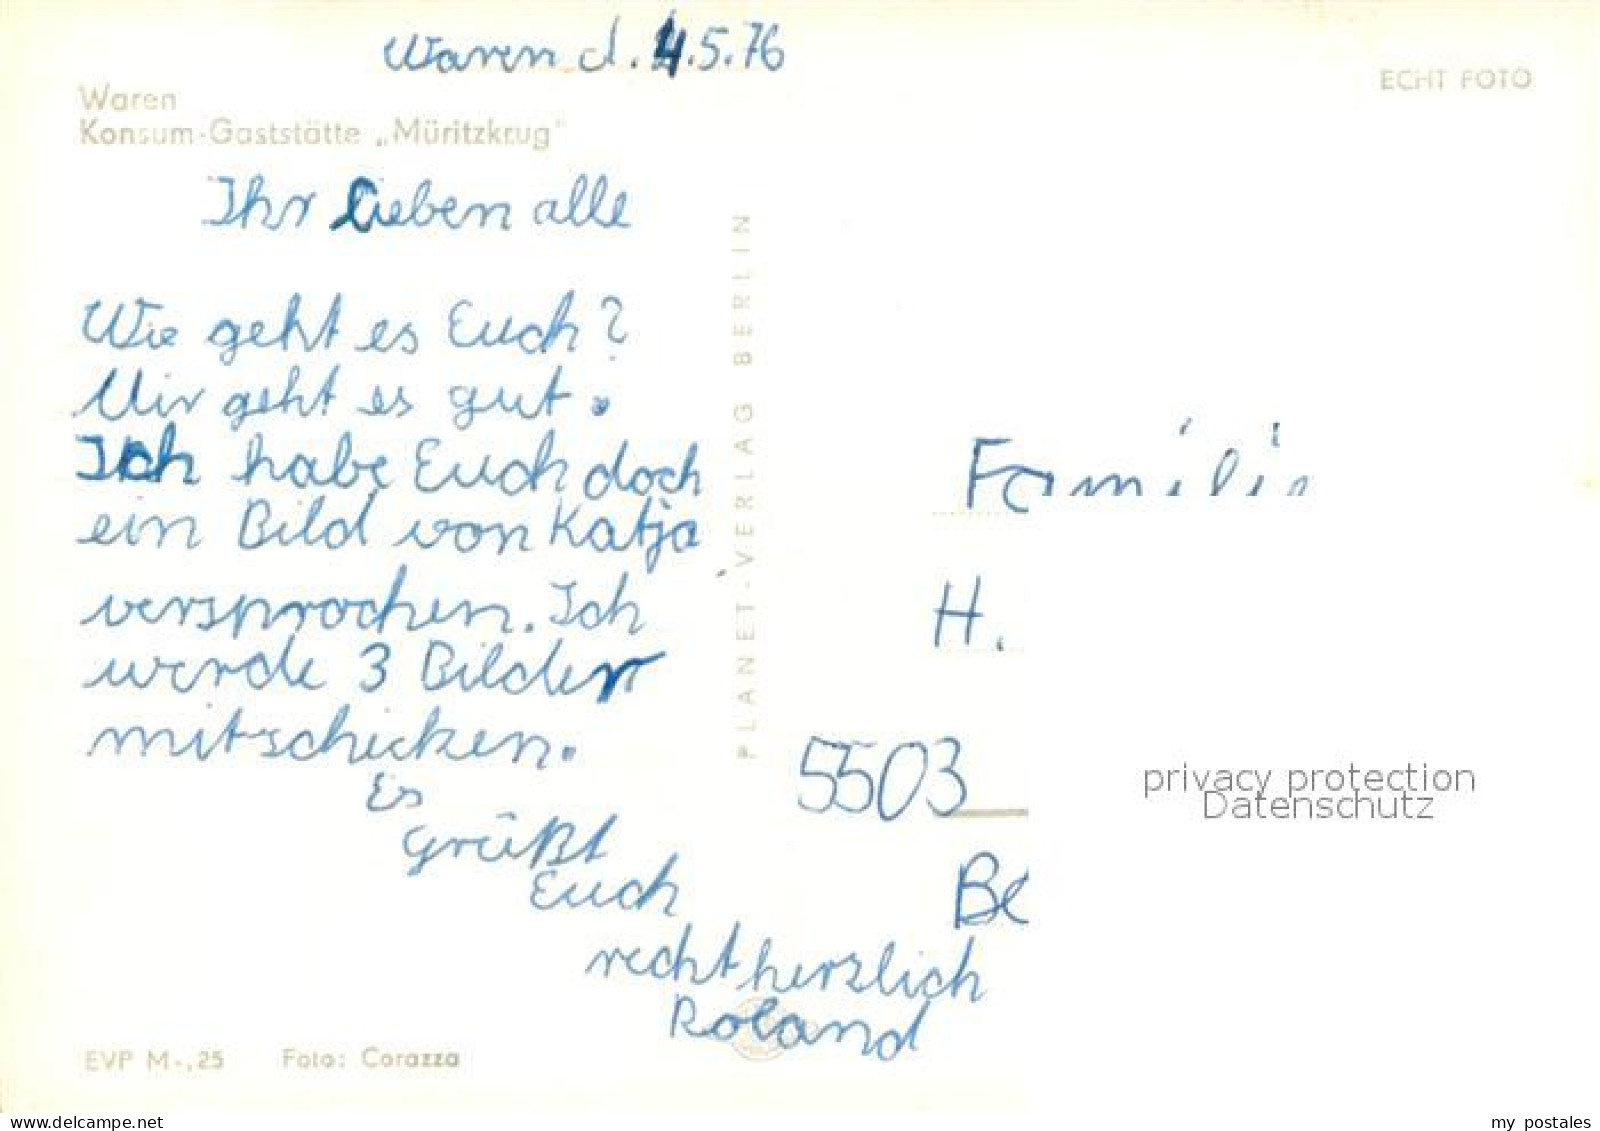 Waren d. 4.5.76
Waren
Konsum-Gaststätte „Müritzkrug"
ECHT FOTO
Ihr Lieben alle
Wie geht es Euch?
Mir geht es gut.
Ich habe Euch doch
ein Bild von Katja
versprochen. Ich
werde 3 Bilder
mitschicken.
Es
grüßt
Euch
recht herzlich
Roland
PLANET-VERLAG BERLIN
Famili
H.
5503
Be
privacy protection
Datenschutz
EVP M-,25 Foto: Corazza
delcampe.net
my_postales